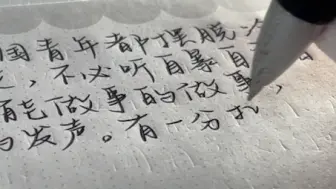 国青年都摆脱
,不必听自暴自
能做事的做事,
的发声。有一分